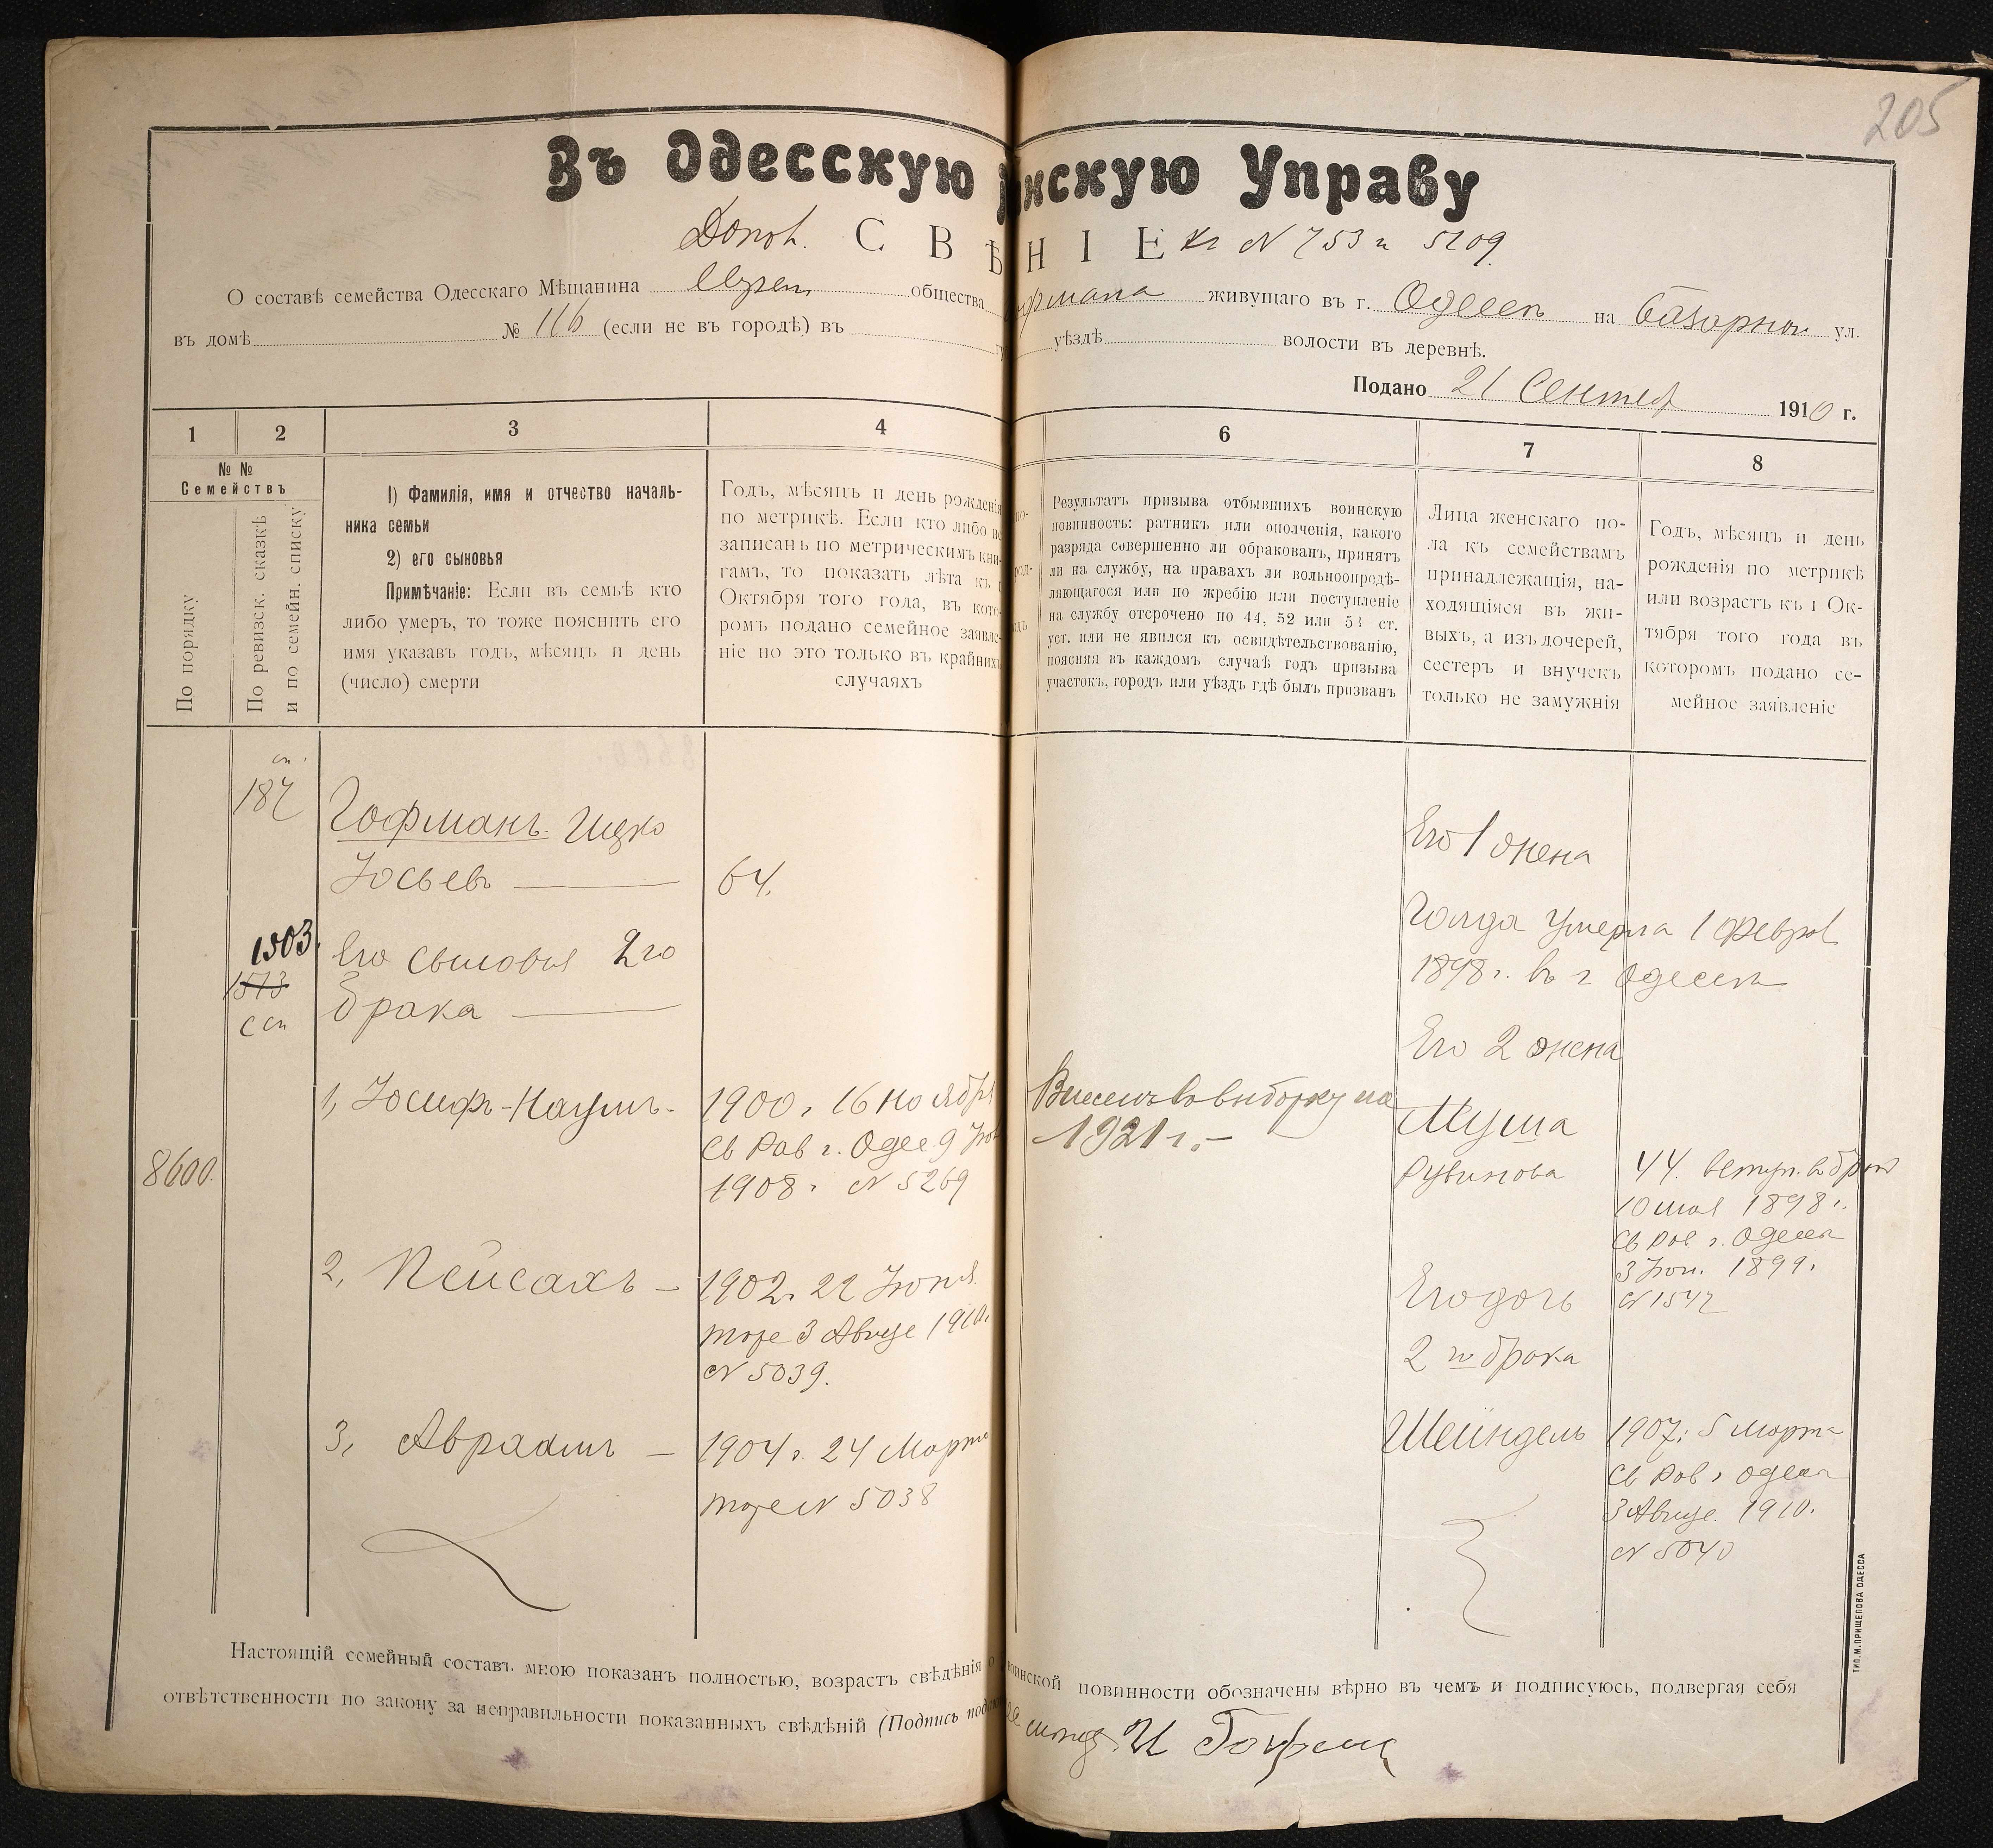 205
Въ Одесскую нскую Управу
С В Ѣ Н І Е къ N 753 и 5209
О составѣ семейства Одесскаго Мѣщанина общества живущаго въ г. Одессѣ на Базарной ул.
въ домѣ № 116 (если не въ городѣ) въ уѣздѣ волости въ деревнѣ.
Подано 21 Сентяб 1910 г.
1 2 3 4 6 7 8
№ №
Семействъ
По порядку
По ревизск. сказкѣ
и по семейн. списку
1) Фамилія, имя и отчество началь-
ника семьи
2) его сыновья
Примѣчаніе: Если въ семьѣ кто
либо умеръ, то тоже пояснить его
имя указавъ годъ, мѣсяцъ и день
(число) смерти
Годъ, мѣсяцъ и день рожденія
по метрикѣ. Если кто либо не
записанъ по метрическимъ кни-
гамъ, то показать лѣта къ 1
Октября того года, въ кото-
ромъ подано семейное заявле-
ніе но это только въ крайнихъ
случаяхъ
Результатъ призыва отбывшихъ воинскую
повинность: ратникъ или ополченія, какого
разряда совершенно ли обракованъ, принятъ
ли на службу, на правахъ ли вольноопредѣ-
ляющагося или по жребію или поступленіе
на службу отсрочено по 44, 52 или 53 ст.
уст. или не явился къ освидѣтельствованію,
поясняя въ каждомъ случаѣ годъ призыва
участокъ, городъ или уѣздъ гдѣ былъ призванъ
Лица женскаго по-
ла къ семействамъ
принадлежащія, на-
ходящіяся въ жи-
выхъ, а изъ дочерей,
сестеръ и внучекъ
только не замужнія
Годъ, мѣсяцъ и день
рожденія по метрикѣ
или возрастъ къ 1 Ок-
тября того года въ
которомъ подано се-
мейное заявленіе
187
Гофманъ Ицко
Іосьевъ
64.
1503.
1573
Его сыновья 2го
брака
8600.
1, Іосифъ-Наумъ
1900 г 16 Ноября
Св Рав г. Одес 9
1908 г N 5269
Внесенъ въ выборку на
1921 г.
2, Пейсахъ
1902. 22 Іюня
тоже 3 Авгус 1910.
N 5039.
3, Авраамъ
1904 г. 24 Марта
тоже N 5038
Его 1 жена
Голда умерла 1 Феврал
1898 г. въ г Одессѣ
Его 2 жена
Муша
Рувинова
44. вступ. въ бракъ
10 мая 1898 г.
Св Рав г. Одессы
3 1899.
N 1547
Его дочь
2 го брака
Шейндель
1907: 5 Марта
Св Рав г Одессы
3 Авгус. 1910.
N 5040
Настоящій семейный составъ мною показанъ полностью, возрастъ свѣдѣнія о воинской повинности обозначены вѣрно въ чемъ и подписуюсь, подвергая себя
отвѣтственности по закону за неправильности показанныхъ свѣдѣній (Подпись
И Гофман
ТИП. М. ПРИЩЕПОВА ОДЕССА